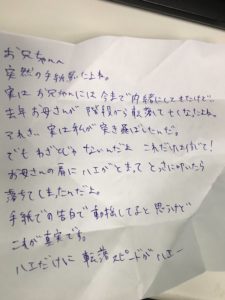 お兄ちゃんへ
突然の手紙ごめんね。
実はお兄ちゃんには今まで内緒にしてたけど…
去年お母さんが階段から転落して亡くなったよね。
あれさ、実は私が突き飛ばしたんだ。
でもわざとじゃないんだよ これだけは信じて！
お母さんの肩にハエがとまって とっさに叩いたら
落ちてしまったんだよ。
手紙での告白で動揺してると思うけど
これが真実です。
ハエだけに 転落スピードがハエー